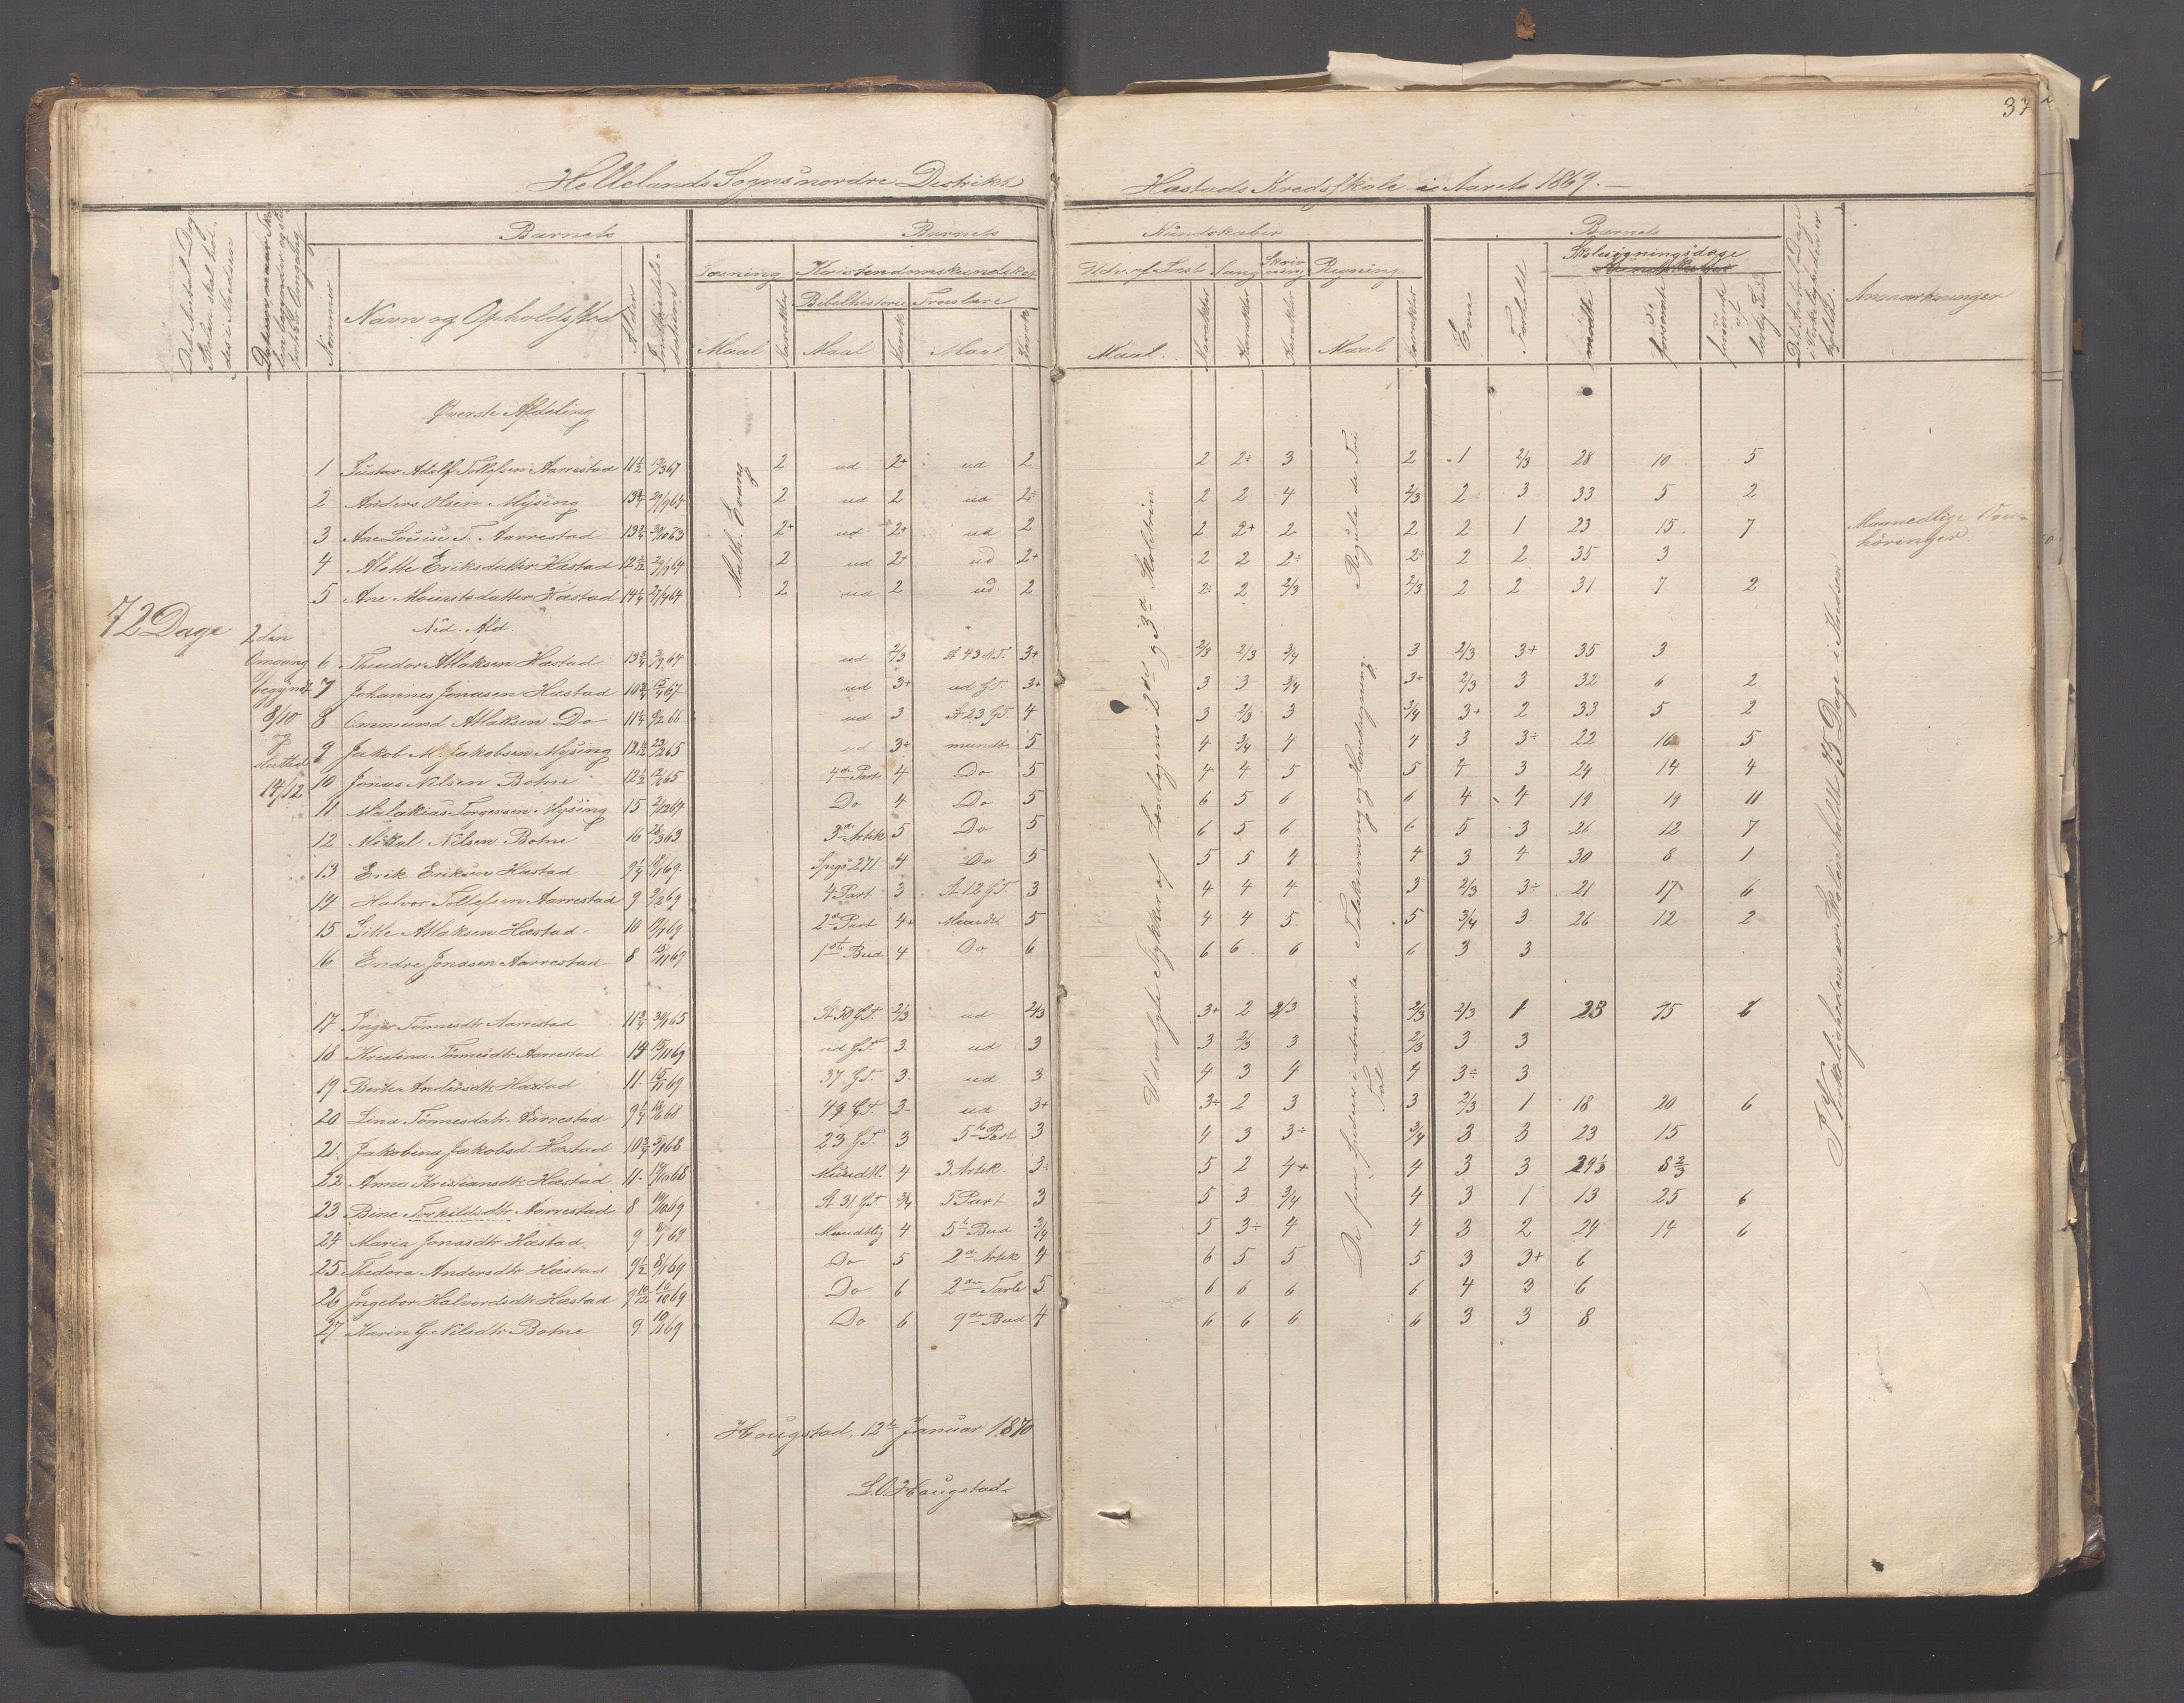 37
Hellelands Sogns nordre Distrikt
Hæstads Kredsskole i Aaret 1869.
Det Antal Dage Skolen skal holdes i Kredsen
Nummer
Barnets
Navn og Opholdssted
Alder
Barnets
Læsning
Maal
Karakter
Kristendomskundskab
Bibelhistorie
Maal
Karakt
Troeslære
Maal
Karakt
Kundskaber
Udv. af Læseb
Maal
Karakter
Sang
Karakter
Skrivning
Karakter
Regning
Maal
Karakter
Barnets
Evne
Forhold
Skolesøgningsdage
mødte
forsømte
forsømte af lovlig Grund
Anmærkninger
Øverste Afdeling
1 Gustav Adolf Tollefsen Aarrestad 11½ 13/3 67 2 ud 2+ ud 2 2 2÷ 3 2 1 2/3 28 10 5
2 Anders Olsen Mysing 13¾ 29/9 64 2 ud 2 ud 2÷ 2 2 4 2/3 2 3 33 5 2
3 Ane Louise T. Aarrestad 13¾ 30/10 63 2+ ud 2+ ud 2 2 2+ 2 2 2 1 23 15 7
4 Alette Eriksdatter Hæstad 12 29/9 64 2 ud 2+ ud 2+ 2 2 2÷ 2÷ 2 2 35 3
5 Ane Mouritsdatter Hæstad 14¼ 27/9 64 2 ud 2 ud 2 2÷ 2 2/3 2/3 2 2 31 7 2
Math. Evang
Regula de Tri
Maanedlige Overhöringer.
72 Dage
2den Omgang begyndt 8/10 og sluttet 14/12
Ned. Afd.
6 Theodor Atlaksen Hæstad 13¾ 64 ud 2/3 St 43 N.T. 3+ 2/3 2/3 3/4 3 2/3 3+ 35 3
7 Johannes Jonasen Hæstad 10¾ 67 ud 3+ ud G.T. 3+ 3 3 3/4 3+ 2/3 3 32 6 2
8 Ommund Atlaksen Do 11¼ 66 ud 3 St 23 G.T. 4 3 2/3 3 3/4 3+ 2 33 5 2
9 Jakob M. Jakobsen Mysing 12 65 ud 3÷ mundt. 5 4 3/4 4 4 3 3÷ 22 16 5
10 Jonas Nilsen Botne 12½ 65 4de Part 4 Do 5 4 4 5 5 4 3 24 14 4
11 Malakias Torgersen Mysing 15 2/12 64 Do 4 Do 5 6 5 6 6 4 4 19 19 11
12 Mikal Nilsen Botne 16 63 3die Artik 5 Do 5 6 5 6 6 5 3 26 12 7
13 Erik Eriksen Hæstad 9¼ 69 Spgs 271 4 Do 5 5 5 4 4 3 4 30 8 1
14 Halvor Tollefsen Aarrestad 9 69 4 Part 3 St 12 G.T. 3 4 4 4 3 2/3 3÷ 21 17 6
15 Gitle Atlaksen Hæstad 10 69 2d Part 4+ Mundt 5 4 4 5 5 3/4 3 26 12 2
16 Endre Jonasen Aarrestad 8 69 1ste Bud 4 Do 6 6 6 6 6 3 3
17 Inger Tönnesdtr Aarrestad 11¾ 30/1 65 St 50 G.T. 2/3 ud 2/3 3+ 2 2/3 2/3 2/3 1 23 15 6
18 Kristina Tönnesdtr Aarrestad 14 15/11 69 ud G.T. 3 ud 3 3 2/3 3 2/3 3 3
19 Berte Andersdtr Hæstad 11 15/11 69 37 G.T. 3 ud 3 4 3 4 4 3÷ 3
20 Lina Tönnesdatr. Aarrestad 9¼ 68 49 G.T. 3 ud 3+ 3÷ 2 3 3 2/3 1 18 20 6
21 Jakobina Jakobsd. Hæstad 10¾ 68 23 G.T. 3 5te Part 3 4 3 3÷ 3/4 3 3 23 15
22 Anna Kristiansdtr Hæstad 11 68 Mundtl. 4 3 Artik. 3÷ 5 2 4+ 4 3 3 29⅓ 8⅔
23 Bine Torkildsdtr Aarrestad 8 69 St 31 G.T. 3/4 5 Part 3 5 3 3/4 4 3 1 13 25 6
24 Maria Jonasdtr Hæstad 9 69 Mundtlig 4 5te Bud 3/4 5 3÷ 4 4 3 2 24 14 6
25 Thedora Andersdtr Hæstad 9½ 8/1 69 Do 5 2d Artik 4 6 5 5 5 3 3+ 6
26 Ingebor Halvordsdtr Hæstad 9 10/12 69 Do 6 2den Tavle 5 6 6 6 6 4 3 6
27 Karin G. Nilsdtr Botne 9 69 Do 6 9de Bud 4 6 6 6 6 3 3 8
Udvalgte Stykker af Læsebogens 2den og 3die Skoletrin
De fire Spedier i ubenævnte Tal
Talskrivning og Hovedregning.
I Virkeligheden er Skolen holdt 75 Dage i Kredsen
Hougstad, 12te Januar 1870
L.O. Haugstad.